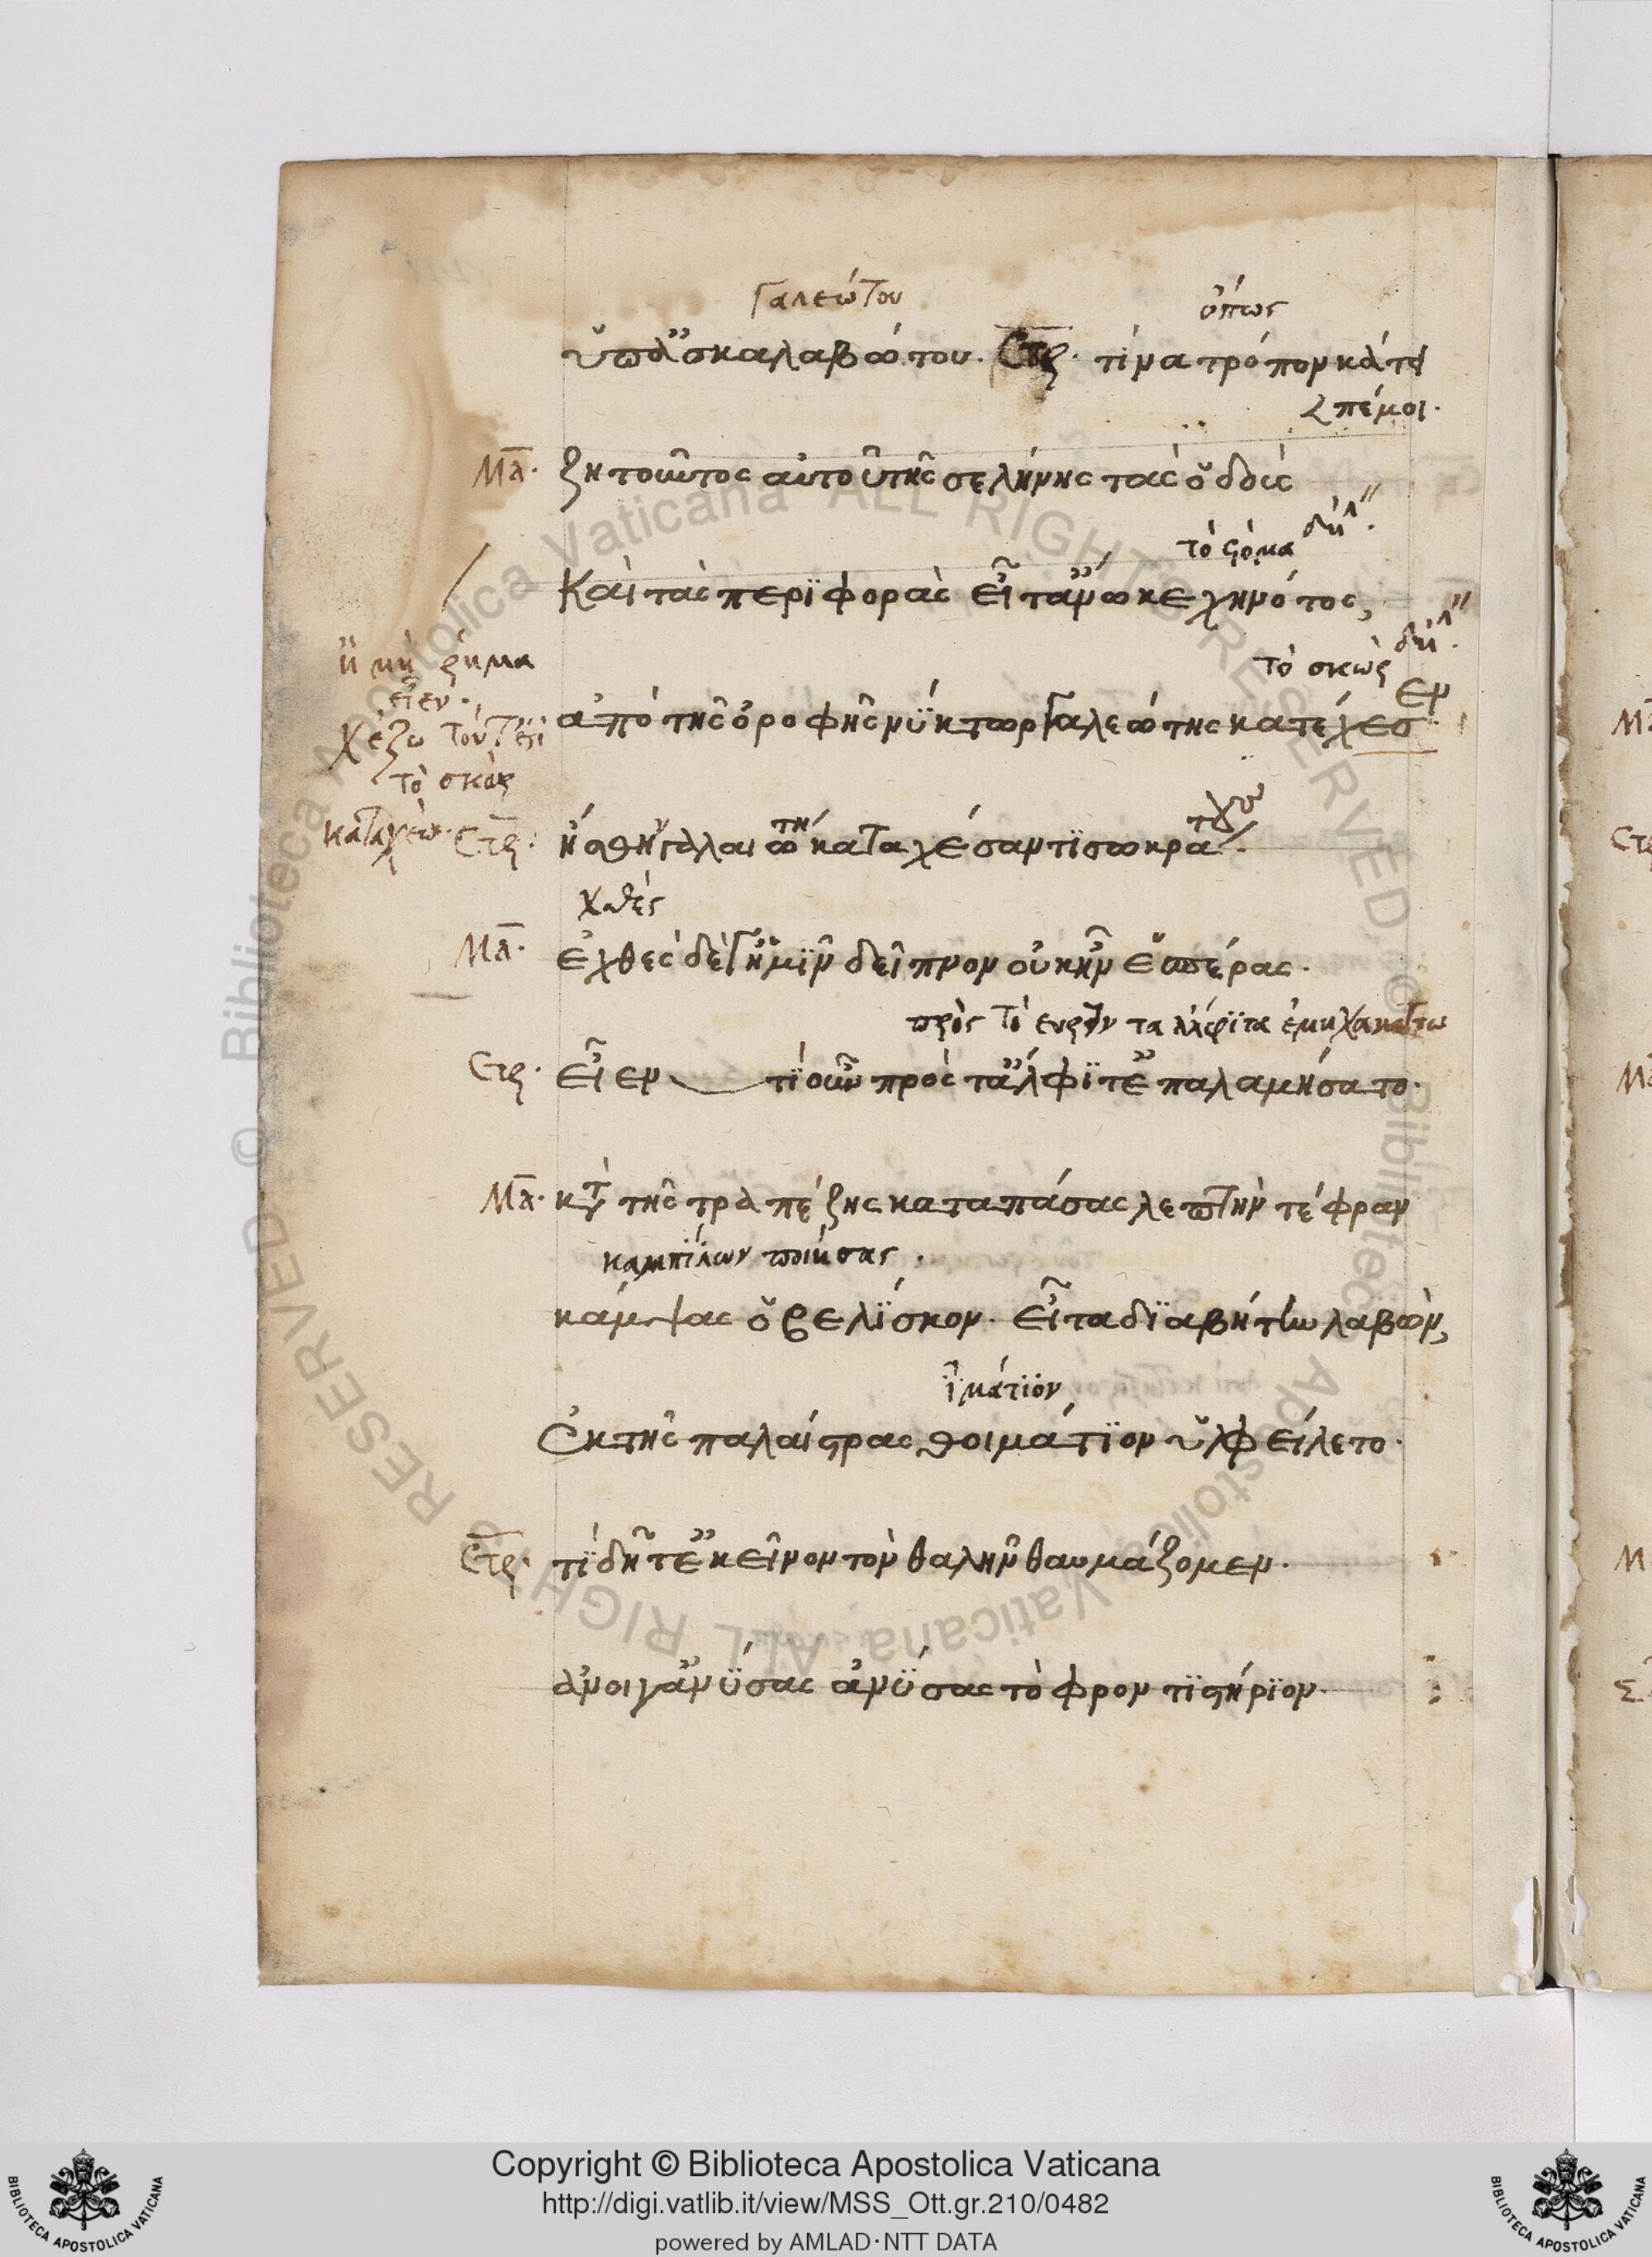 Γαλεώτου ὅπως
ὑπ' ἀσκαλαβώτου. Στρ. τίνα τρόπον κάτει
πέμοι.
Μα. ζητοῦντος αὐτοῦ τῆς σελήνης τὰς ὁδοὺς
τὸ στόμα δηλ
Καὶ τὰς περιφορὰς εἶτ' ἄνω κεχηνότος,
τὸ σκὼρ δηλ
ἀπὸ τῆς ὀροφῆς νύκτωρ γαλεώτης κατέχεσεν
ἢ μὴ ῥῆμα
εἶεν.
χέζω
τὸ σκὼρ
καταχέω
Στρ. ἥσθην γαλεώτη καταχέσαντι σωκράτους.
χθὲς
Μα. ἐχθὲς δὲ γ' ἡμῖν δεῖπνον οὐκ ἦν ἑσπέρας.
πρὸς τὸ εὑρεῖν τα ἄλφιτα ἐμηχανᾶτο
Στρ. εἶεν τί οὖν πρὸς τἄλφιτ' ἐπαλαμήσατο.
Μα. κατὰ τῆς τραπέζης καταπάσας λεπτὴν τέφραν
καμπύλων ποιήσας.
κάμψας ὀβελίσκον. εἶτα διαβήτην λαβὼν,
ἱμάτιον
ἐκ τῆς παλαίστρας θοιμάτιον ὑφείλετο.
Στρ. τί δῆτ' ἐκεῖνον τὸν θαλῆν θαυμάζομεν.
ἄνοιγ' ἀνύσας ἀνύσας τὸ φροντιστήριον.
© Biblioteca Apostolica Vaticana ALL RIGHTS RESERVED © Biblioteca Apostolica Vaticana ALL RIGHTS RESERVED
Μα
Στρ
Μα
Μ
Σ
Copyright © Biblioteca Apostolica Vaticana
http://digi.vatlib.it/view/MSS_Ott.gr.210/0482
powered by AMLAD·NTT DATA
BIBLIOTECA APOSTOLICA VATICANA
BIBLIOTECA APOSTOLICA VATICANA